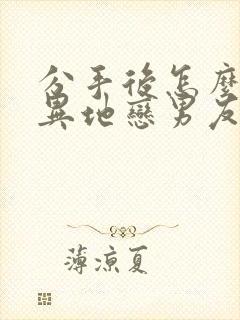 分手後怎麼
異地戀男友
薄涼夏